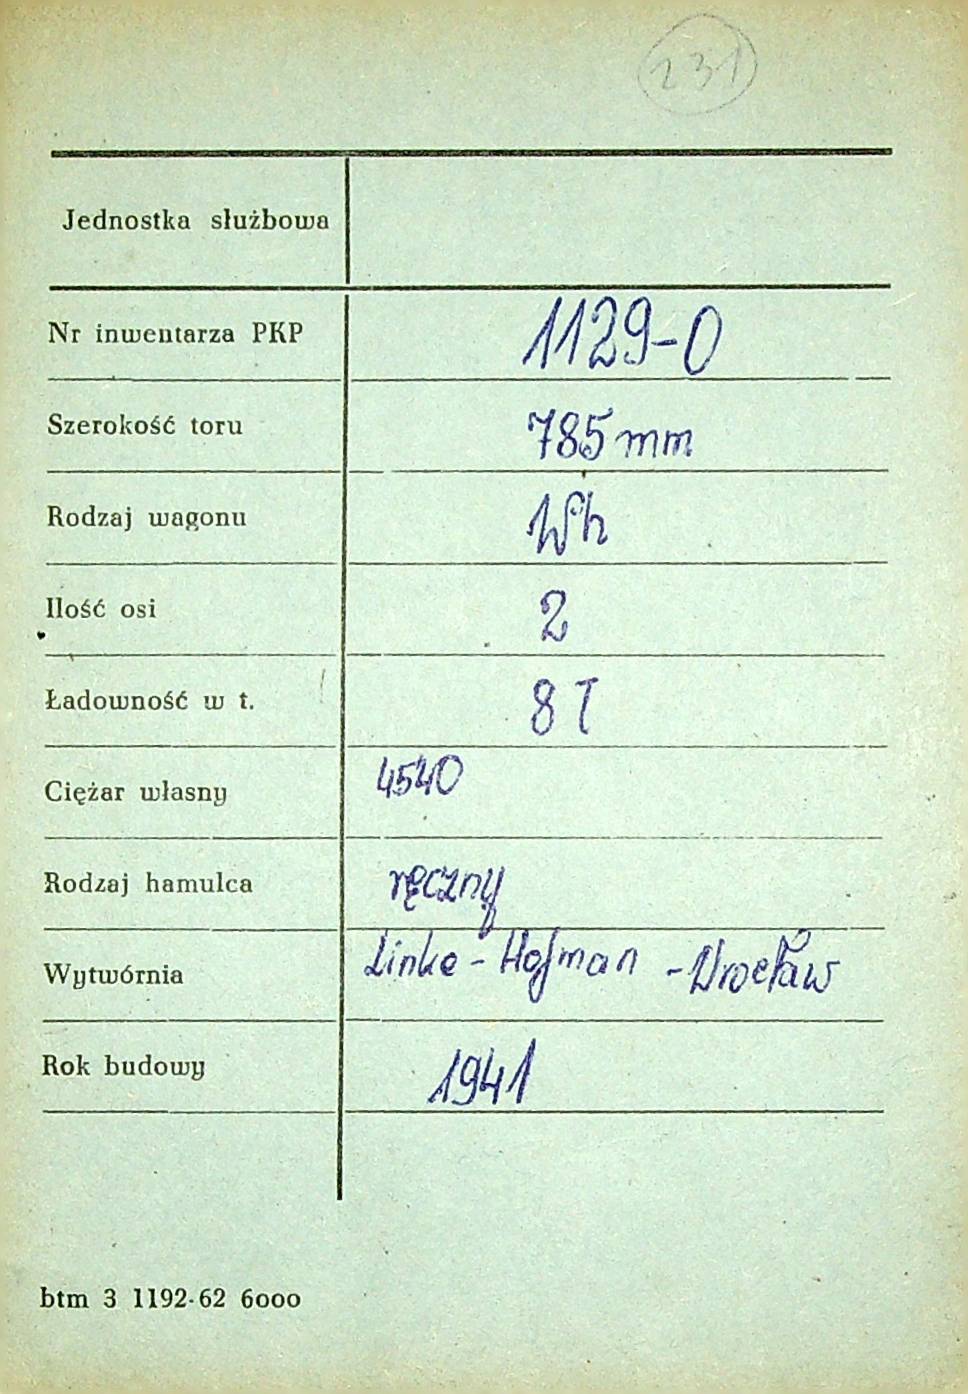 231
Jednostka służbowa
Nr inwentarza PKP 1129-0
Szerokość toru 785 mm
Rodzaj wagonu Wh
Ilość osi 2
Ładowność w t. 8 T
Ciężar własny 4540
Rodzaj hamulca ręczny
Wytwórnia Linke - Hofman - Wrocław
Rok budowy 1941
btm 3 1192-62 6000